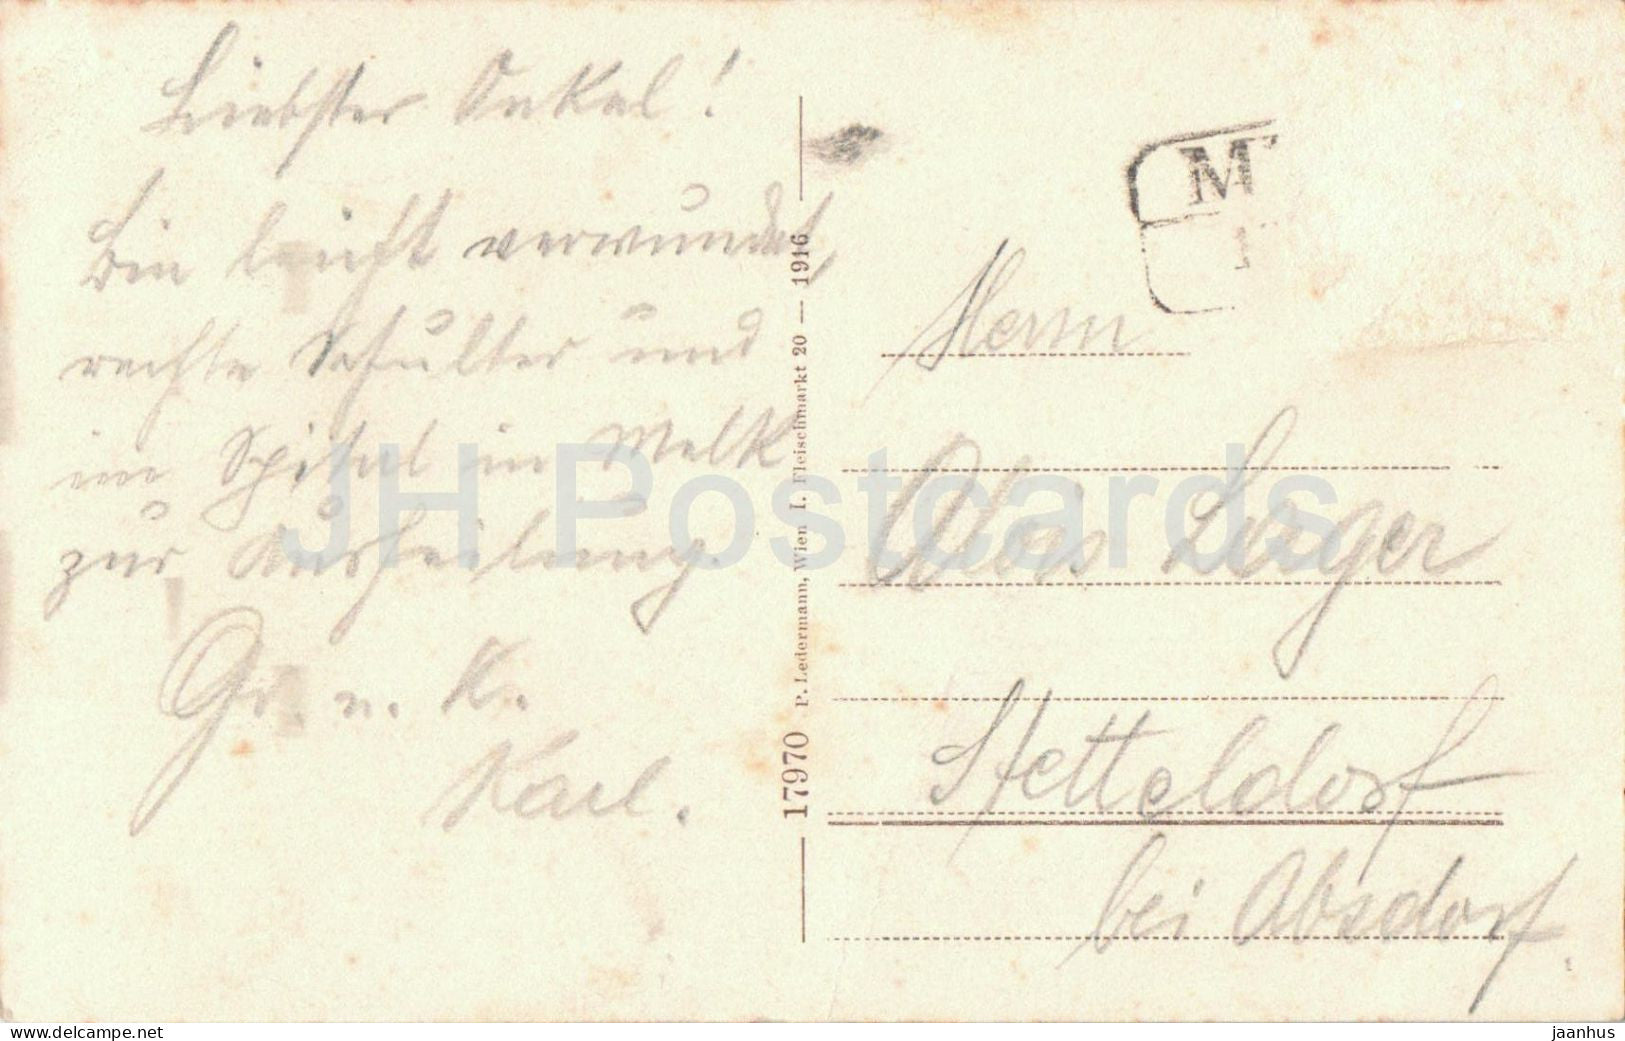 Liebster Onkel!
Bin leicht verwundet,
rechte Schulter und
im Spital in Melk
zur Ausheilung.
Gr. u. K.
Karl.
17970 P. Ledermann, Wien I. Fleischmarkt 20 — 1916
M
Herrn
Alois Lerger
Stetteldorf
bei Absdorf.
JH Postcards
www.delcampe.net
jaanhus